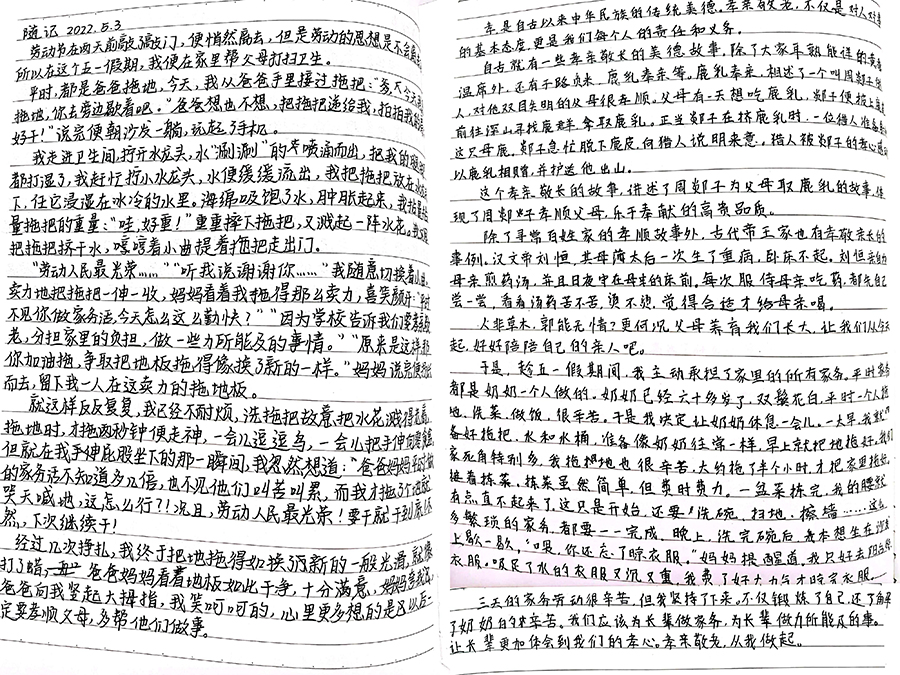 随记 2022.5.3
劳动节在两天前敲了敲门，便悄然离去，但是劳动的思想是不会
所以在这个五一假期，我便在家里帮父母打扫卫生。
平时，都是爸爸拖地，今天，我从爸爸手里接过拖把：“爸，今天
拖地，你去旁边歇着吧。”爸爸想也不想，把拖把递给我，拍拍我
好干！”说完便朝沙发一躺，玩起了手机。
我走进卫生间，拧开水龙头，水“涮涮”的喷涌而出，把我的
都打湿了，我赶忙拧小水龙头，水便缓缓流出，我把拖把放在
下，任它浸湿在冰冷的水里。海绵吸饱了水，肿胀起来，我掂
量拖把的重量：“哇，好重！”重重摔下拖把，又溅起一阵水花。我
把拖把挤干水，哼着小曲提着拖把走出门。
“劳动人民最光荣……”“听我说谢谢你……”我随意切换着
卖力地把拖把一伸一收，妈妈看着我拖得那么卖力，喜笑颜开：
不见你做家务活，今天怎么这么勤快？”“因为学校告诉我们要
老，分担家里的负担，做一些力所能及的事情。”“原来是这样
你加油拖，争取把地板拖得像换了新的一样。”妈妈说完便
而去，留下我一人在这卖力的拖地板。
就这样反反复复，我已经不耐烦，洗拖把故意把水花溅得
拖地时，才拖两秒钟便走神，一会儿逗逗鸟，一会儿把手伸
但就在我手伸屁股坐下的那一瞬间，我忽然想道：“爸爸妈妈平时做
的家务活不知道多几倍，也不见他们叫苦叫累，而我才拖了个地就
哭天喊地，这怎么行？！况且，劳动人民最光荣！要干就干到
然，下次继续干！
经过几次挣扎，我终于把地拖得如换了新的一般光滑，就像
打了蜡，爸爸妈妈看着地板如此干净，十分满意，妈妈
爸爸向我竖起大拇指，我笑呵呵的，心里更多想的是以后一
定要孝顺父母，多帮他们做事。
孝是自古以来中华民族的传统美德。孝亲敬老，不仅是对人对
的基本态度，更是我们每个人的责任和义务。
自古就有一些孝亲敬长的美德故事，除了大家耳熟能详的黄香
温席外，还有子路负米、鹿乳奉亲等。鹿乳奉亲，相述了一个叫周郯子
人，对他双目失明的父母很孝顺。父母有一天想吃鹿乳，郯子便披上鹿
前往深山寻找鹿群拿取鹿乳。正当郯子在挤鹿乳时，一位猎人准备
这只母鹿，郯子急忙脱下鹿皮，向猎人说明来意。猎人被郯子的孝心
以鹿乳相赠，并护送他出山。
这个孝亲敬长的故事，讲述了周郯子为父母取鹿乳的故事，体
现了周郯子孝顺父母，乐于奉献的高贵品质。
除了寻常百姓家的孝顺故事外，古代帝王家也有孝敬亲长的
事例。汉文帝刘恒，其母薄太后一次生了重病，卧床不起。刘恒亲自为
母亲煎药汤，并且日夜守在母亲的床前。每次服侍母亲吃药，都先自己
尝一尝，看看汤药苦不苦，烫不烫，觉得合适才给母亲喝。
人非草木，孰能无情？更何况父母养育我们长大，让我们从今天
起，好好陪陪自己的亲人吧。
于是，趁五一假期间，我主动承担了家里的所有家务。平时家务
都是奶奶一个人做的。奶奶已经六十多岁了，双鬓花白，平时一个人拖
地、洗菜、做饭，很辛苦。于是我决定让奶奶休息一会儿。一大早，我就
备好拖把、水和水桶，准备像奶奶往常一样，早上就把地拖好。我们
家死角特别多，我拖地也很辛苦，大约拖了半个小时，才把家里拖
接着拣菜，拣菜虽然简单，但费时费力。一盆菜拣完，我的腰就
有点直不起来了，这只是开始，还要洗碗、扫地、擦墙……这
多繁琐的家务，都要一一完成。晚上，洗完碗后，我本想坐在沙
上歇一歇，“喂，你还忘了晾衣服。”妈妈提醒道，我只好去阳台
衣服。吸足了水的衣服又沉又重，我费了好大力气才晾完衣服。
三天的家务劳动很辛苦，但我坚持了下来。不仅锻炼了自己，还了解
了奶奶的辛苦。我们应该为长辈做家务，为长辈做力所能及的事。
让长辈更加体会到我们的孝心。孝亲敬老，从我做起。